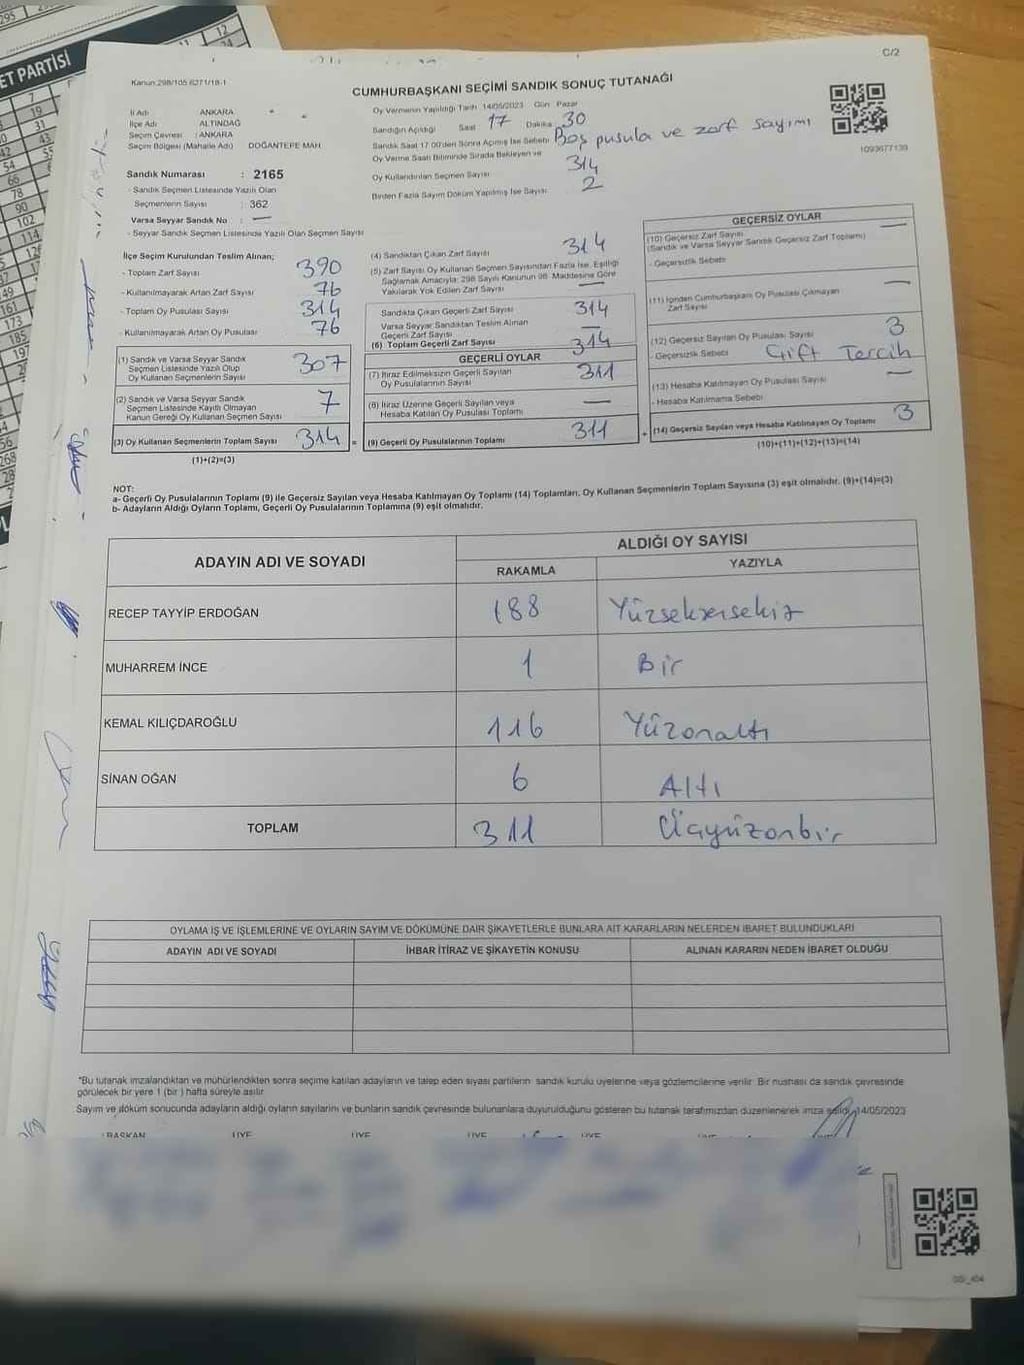 ET PARTİSİ
C/2
Kanun:298/105 6271/18-1
CUMHURBAŞKANI SEÇİMİ SANDIK SONUÇ TUTANAĞI
İl Adı : ANKARA
İlçe Adı : ALTINDAĞ
Seçim Çevresi : ANKARA
Seçim Bölgesi (Mahalle Adı) DOĞANTEPE MAH.
Oy Vermenin Yapıldığı Tarih 14/05/2023 Gün Pazar
Sandığın Açıldığı Saat 17 Dakika 30
Sandık Saat 17.00'den Sonra Açılmış İse Sebebi Boş pusula ve zarf sayımı
Oy Verme Saati Bitiminde Sırada Bekleyen ve
Oy Kullandırılan Seçmen Sayısı 314
Birden Fazla Sayım Döküm Yapılmış İse Sayısı 2
1093677139
Sandık Numarası : 2165
- Sandık Seçmen Listesinde Yazılı Olan
Seçmenlerin Sayısı : 362
Varsa Seyyar Sandık No : —
- Seyyar Sandık Seçmen Listesinde Yazılı Olan Seçmen Sayısı
İlçe Seçim Kurulundan Teslim Alınan;
- Toplam Zarf Sayısı 390
- Kullanılmayarak Artan Zarf Sayısı 76
- Toplam Oy Pusulası Sayısı 314
- Kullanılmayarak Artan Oy Pusulası 76
(1) Sandık ve Varsa Seyyar Sandık
Seçmen Listesinde Yazılı Olup
Oy Kullanan Seçmenlerin Sayısı 307
(2) Sandık ve Varsa Seyyar Sandık
Seçmen Listesinde Kayıtlı Olmayan
Kanun Gereği Oy Kullanan Seçmen Sayısı 7
(3) Oy Kullanan Seçmenlerin Toplam Sayısı 314 =
(1)+(2)=(3)
(4) Sandıktan Çıkan Zarf Sayısı 314
(5) Zarf Sayısı Oy Kullanan Seçmen Sayısından Fazla İse, Eşitliği
Sağlamak Amacıyla; 298 Sayılı Kanunun 98. Maddesine Göre
Yakılarak Yok Edilen Zarf Sayısı —
Sandıkta Çıkan Geçerli Zarf Sayısı 314
Varsa Seyyar Sandıktan Teslim Alınan
Geçerli Zarf Sayısı —
(6) Toplam Geçerli Zarf Sayısı 314
GEÇERLİ OYLAR
(7) İtiraz Edilmeksizin Geçerli Sayılan
Oy Pusulalarının Sayısı 311
(8) İtiraz Üzerine Geçerli Sayılan veya
Hesaba Katılan Oy Pusulası Toplamı —
(9) Geçerli Oy Pusulalarının Toplamı 311 +
GEÇERSİZ OYLAR
(10) Geçersiz Zarf Sayısı
(Sandık ve Varsa Seyyar Sandık Geçersiz Zarf Toplamı) —
- Geçersizlik Sebebi
(11) İçinden Cumhurbaşkanı Oy Pusulası Çıkmayan
Zarf Sayısı —
(12) Geçersiz Sayılan Oy Pusulası Sayısı 3
- Geçersizlik Sebebi Çift Tercih
(13) Hesaba Katılmayan Oy Pusulası Sayısı —
- Hesaba Katılmama Sebebi
(14) Geçersiz Sayılan veya Hesaba Katılmayan Oy Toplamı 3
(10)+(11)+(12)+(13)=(14)
NOT:
a- Geçerli Oy Pusulalarının Toplamı (9) ile Geçersiz Sayılan veya Hesaba Katılmayan Oy Toplamı (14) Toplamları, Oy Kullanan Seçmenlerin Toplam Sayısına (3) eşit olmalıdır. (9)+(14)=(3)
b- Adayların Aldığı Oyların Toplamı, Geçerli Oy Pusulalarının Toplamına (9) eşit olmalıdır.
ADAYIN ADI VE SOYADI ALDIĞI OY SAYISI
RAKAMLA YAZIYLA
RECEP TAYYİP ERDOĞAN 188 Yüzseksensekiz
MUHARREM İNCE 1 Bir
KEMAL KILIÇDAROĞLU 116 Yüzonaltı
SİNAN OĞAN 6 Altı
TOPLAM 311 Üçyüzonbir
OYLAMA İŞ VE İŞLEMLERİNE VE OYLARIN SAYIM VE DÖKÜMÜNE DAİR ŞİKAYETLERLE BUNLARA AİT KARARLARIN NELERDEN İBARET BULUNDUKLARI
ADAYIN ADI VE SOYADI İHBAR İTİRAZ VE ŞİKAYETİN KONUSU ALINAN KARARIN NEDEN İBARET OLDUĞU
*Bu tutanak imzalandıktan ve mühürlendikten sonra seçime katılan adayların ve talep eden siyasi partilerin sandık kurulu üyelerine veya gözlemcilerine verilir. Bir nüshası da sandık çevresinde
görülecek bir yere 1 (bir) hafta süreyle asılır
Sayım ve döküm sonucunda adayların aldığı oyların sayılarını ve bunların sandık çevresinde bulunanlara duyurulduğunu gösteren bu tutanak tarafımızdan düzenlenerek imza edildi. 14/05/2023
BAŞKAN ÜYE ÜYE ÜYE ÜYE